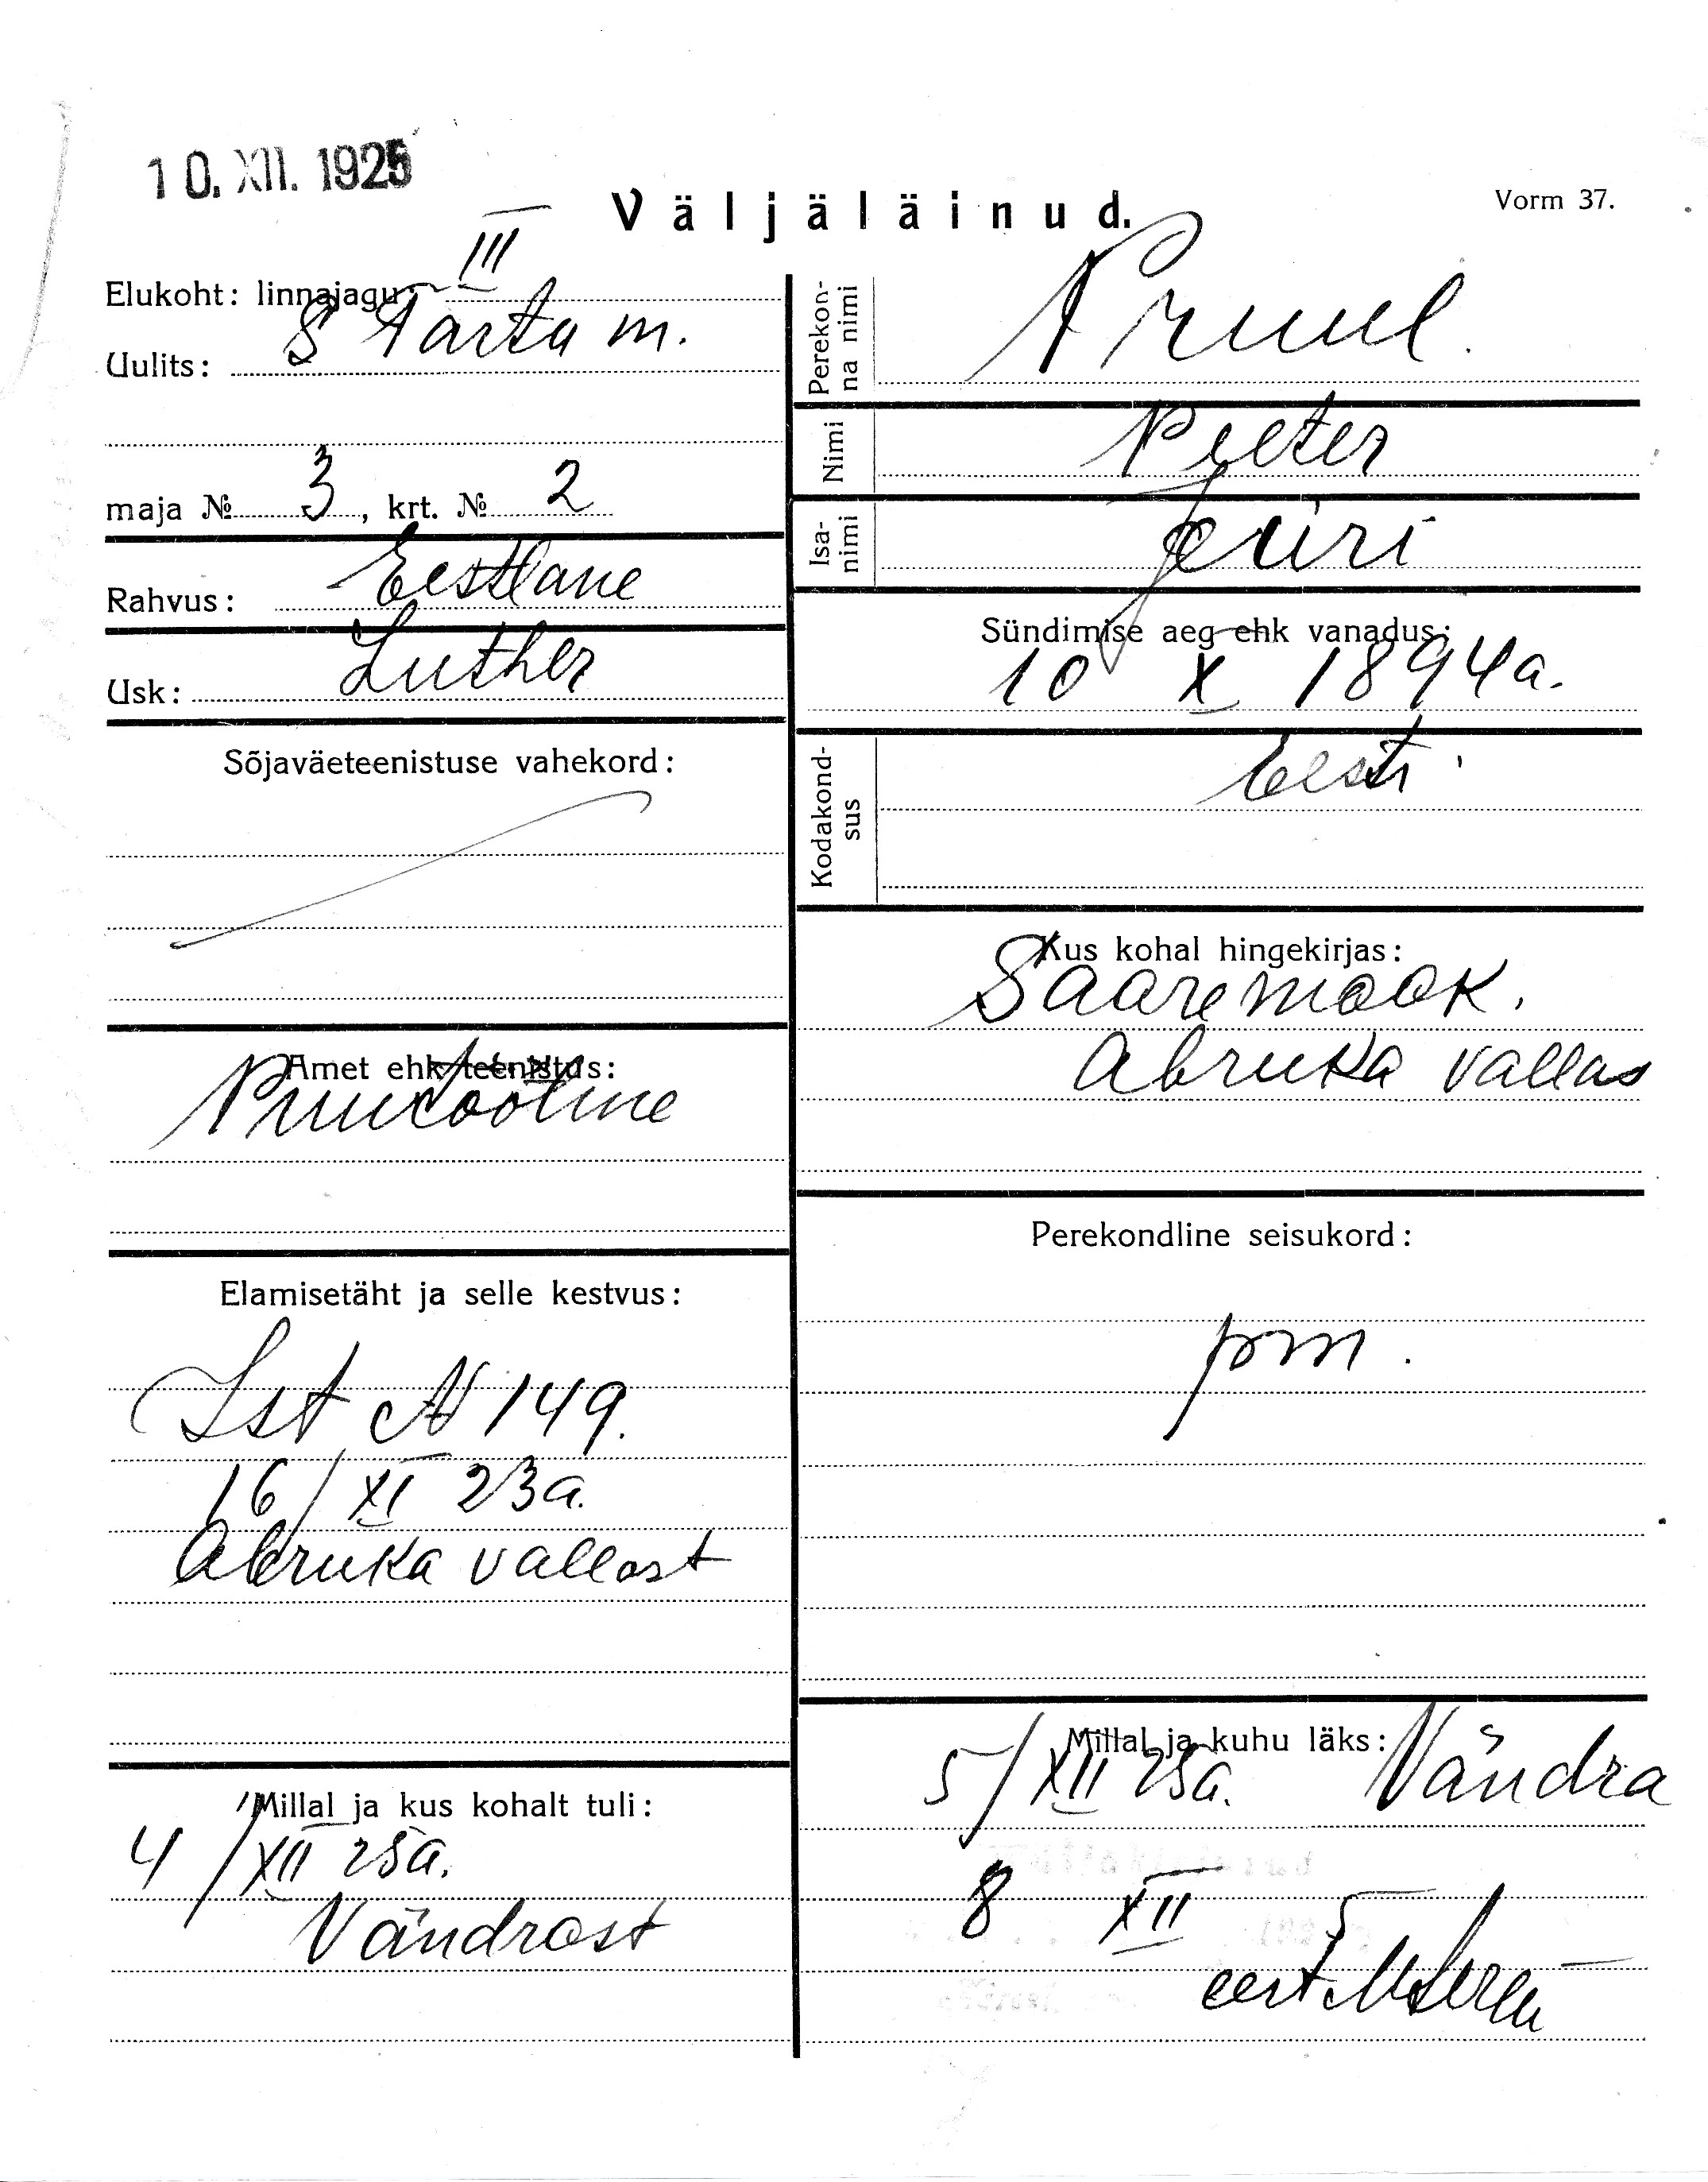 10. XII. 1925
Väljaläinud.
Vorm 37.
Elukoht: linnajagu: III
Uulits: S Tartu m.
maja № 3, krt. № 2
Rahvus: Eestlane
Usk: Luther
Sõjaväeteenistuse vahekord:
Amet ehk teenistus:
Puutööline
Elamisetäht ja selle kestvus:
Ist N 149.
16/XI 23a.
Abruka vallast
Millal ja kus kohalt tuli:
4/XII 25a.
Vändrast
Perekonna nimi
Pruul.
Nimi Peeter
Isanimi Jüri
Sündimise aeg ehk vanadus:
10 X 1894a.
Kodakondsus Eesti
Kus kohal hingekirjas:
Saaremaak.
Abruka vallas
Perekondline seisukord:
pm.
Millal ja kuhu läks:
5/XII 25a. Vändra
8 XII